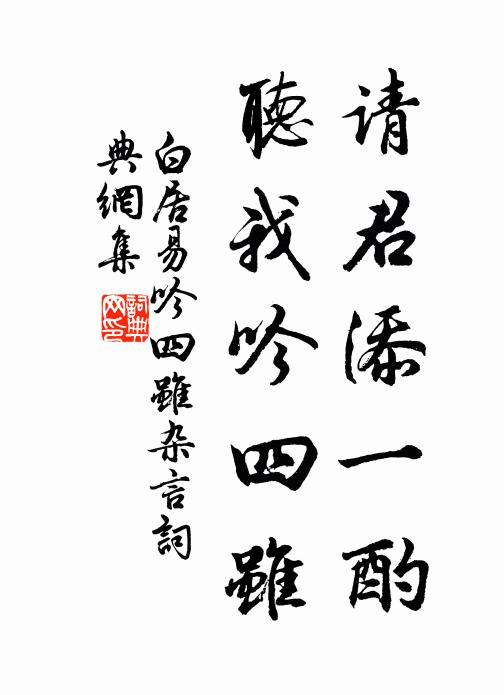 请君添一酌
聽我吟四雖
白居易吟四雖杂言詞
典網集
詞典
网印